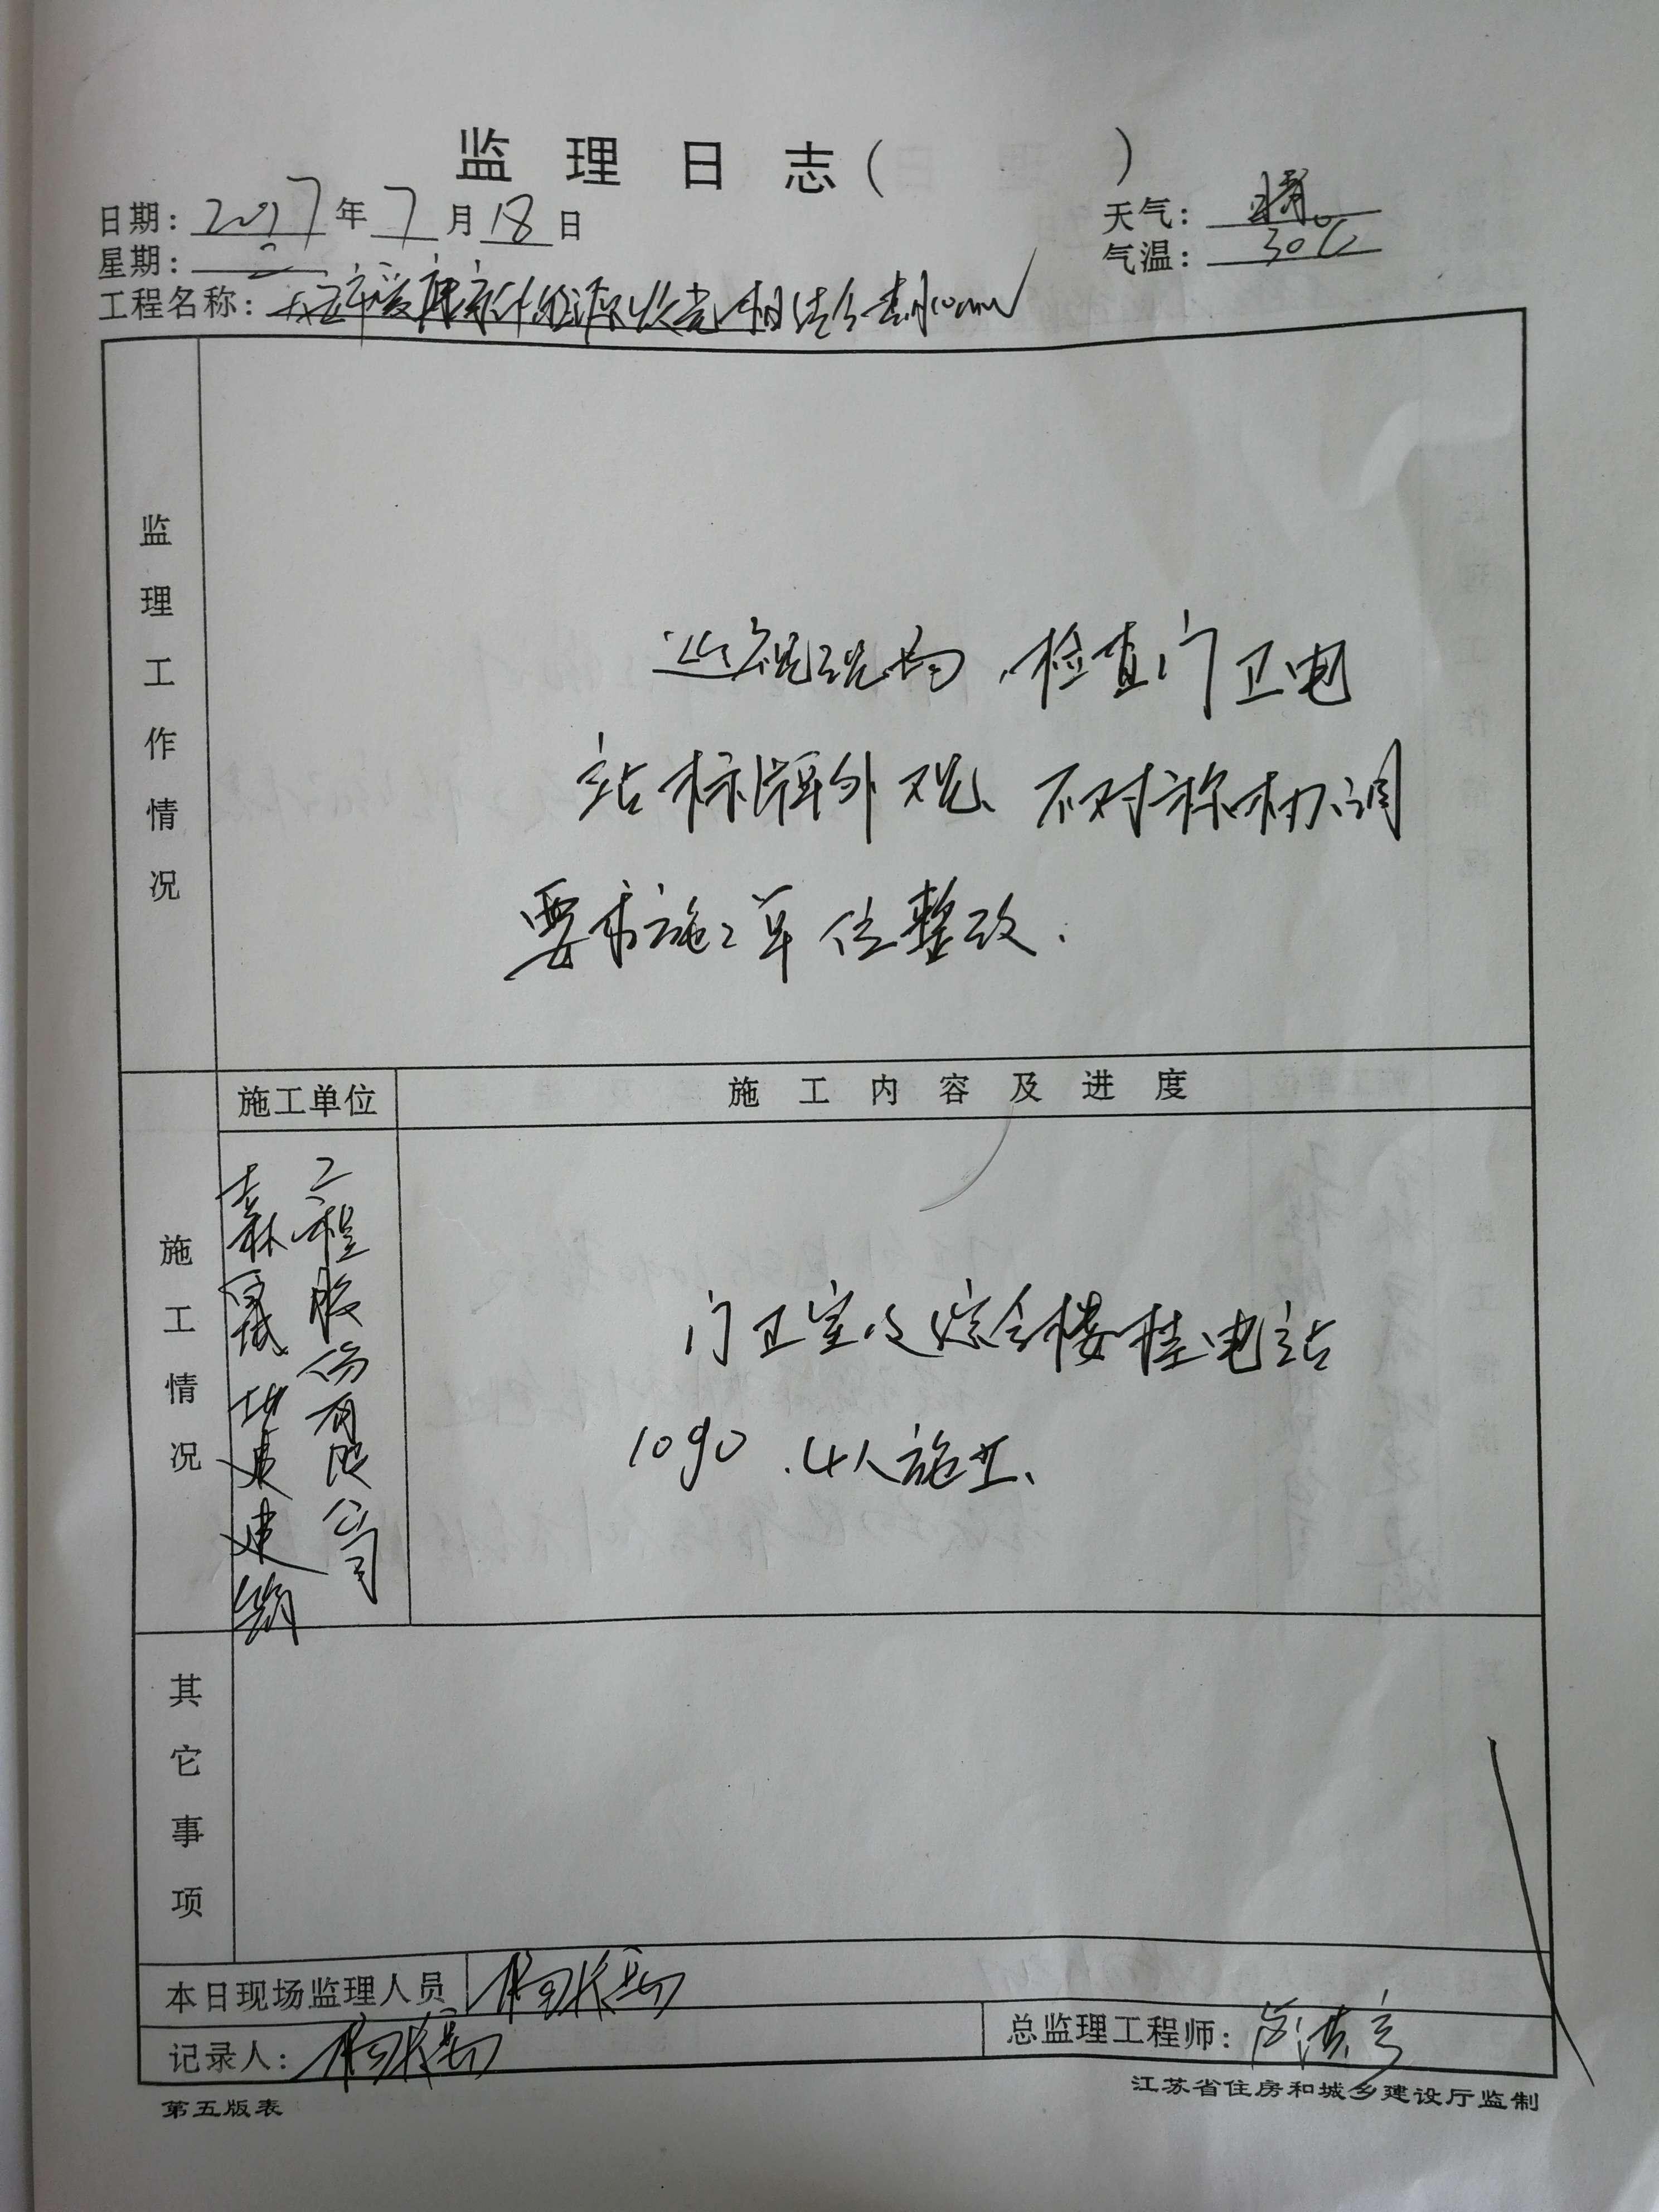 监理日志（ ）
日期：2017年7月18日
天气：晴
星期：二
气温：30℃
工程名称：
监理工作情况
巡视现场，检查门卫电
站标牌外观、不对称协调
要求施工单位整改.
施工单位
施工内容及进度
施工情况
工程股份有限公司
门卫室及综合楼挂电站
4人施工、
其它事项
本日现场监理人员
记录人：
总监理工程师：
第五版表
江苏省住房和城乡建设厅监制